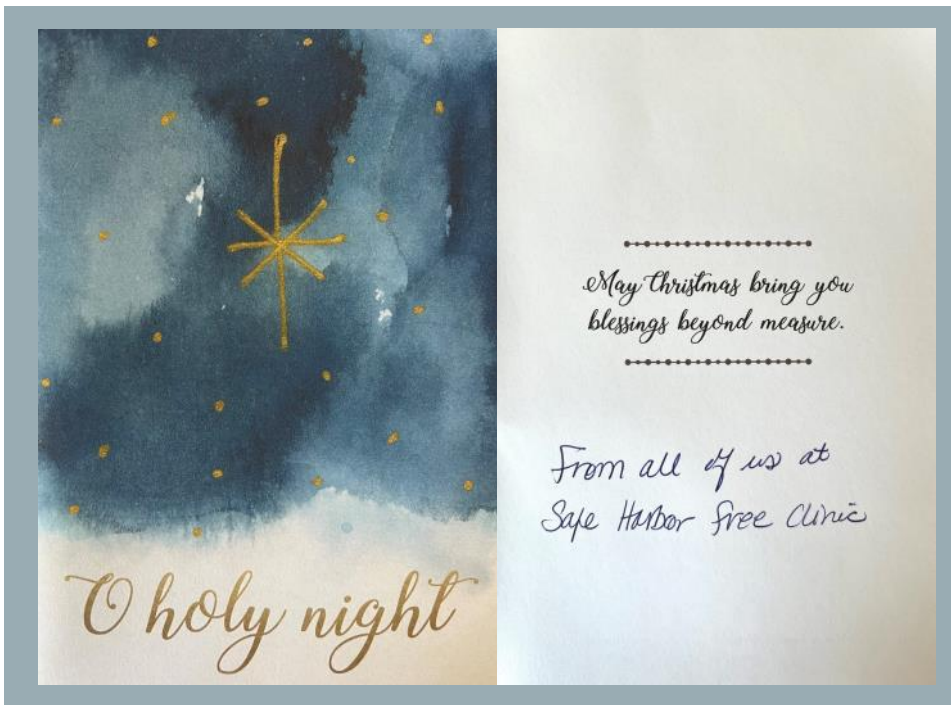 O holy night
May Christmas bring you
blessings beyond measure.
From all of us at
Safe Harbor Free Clinic